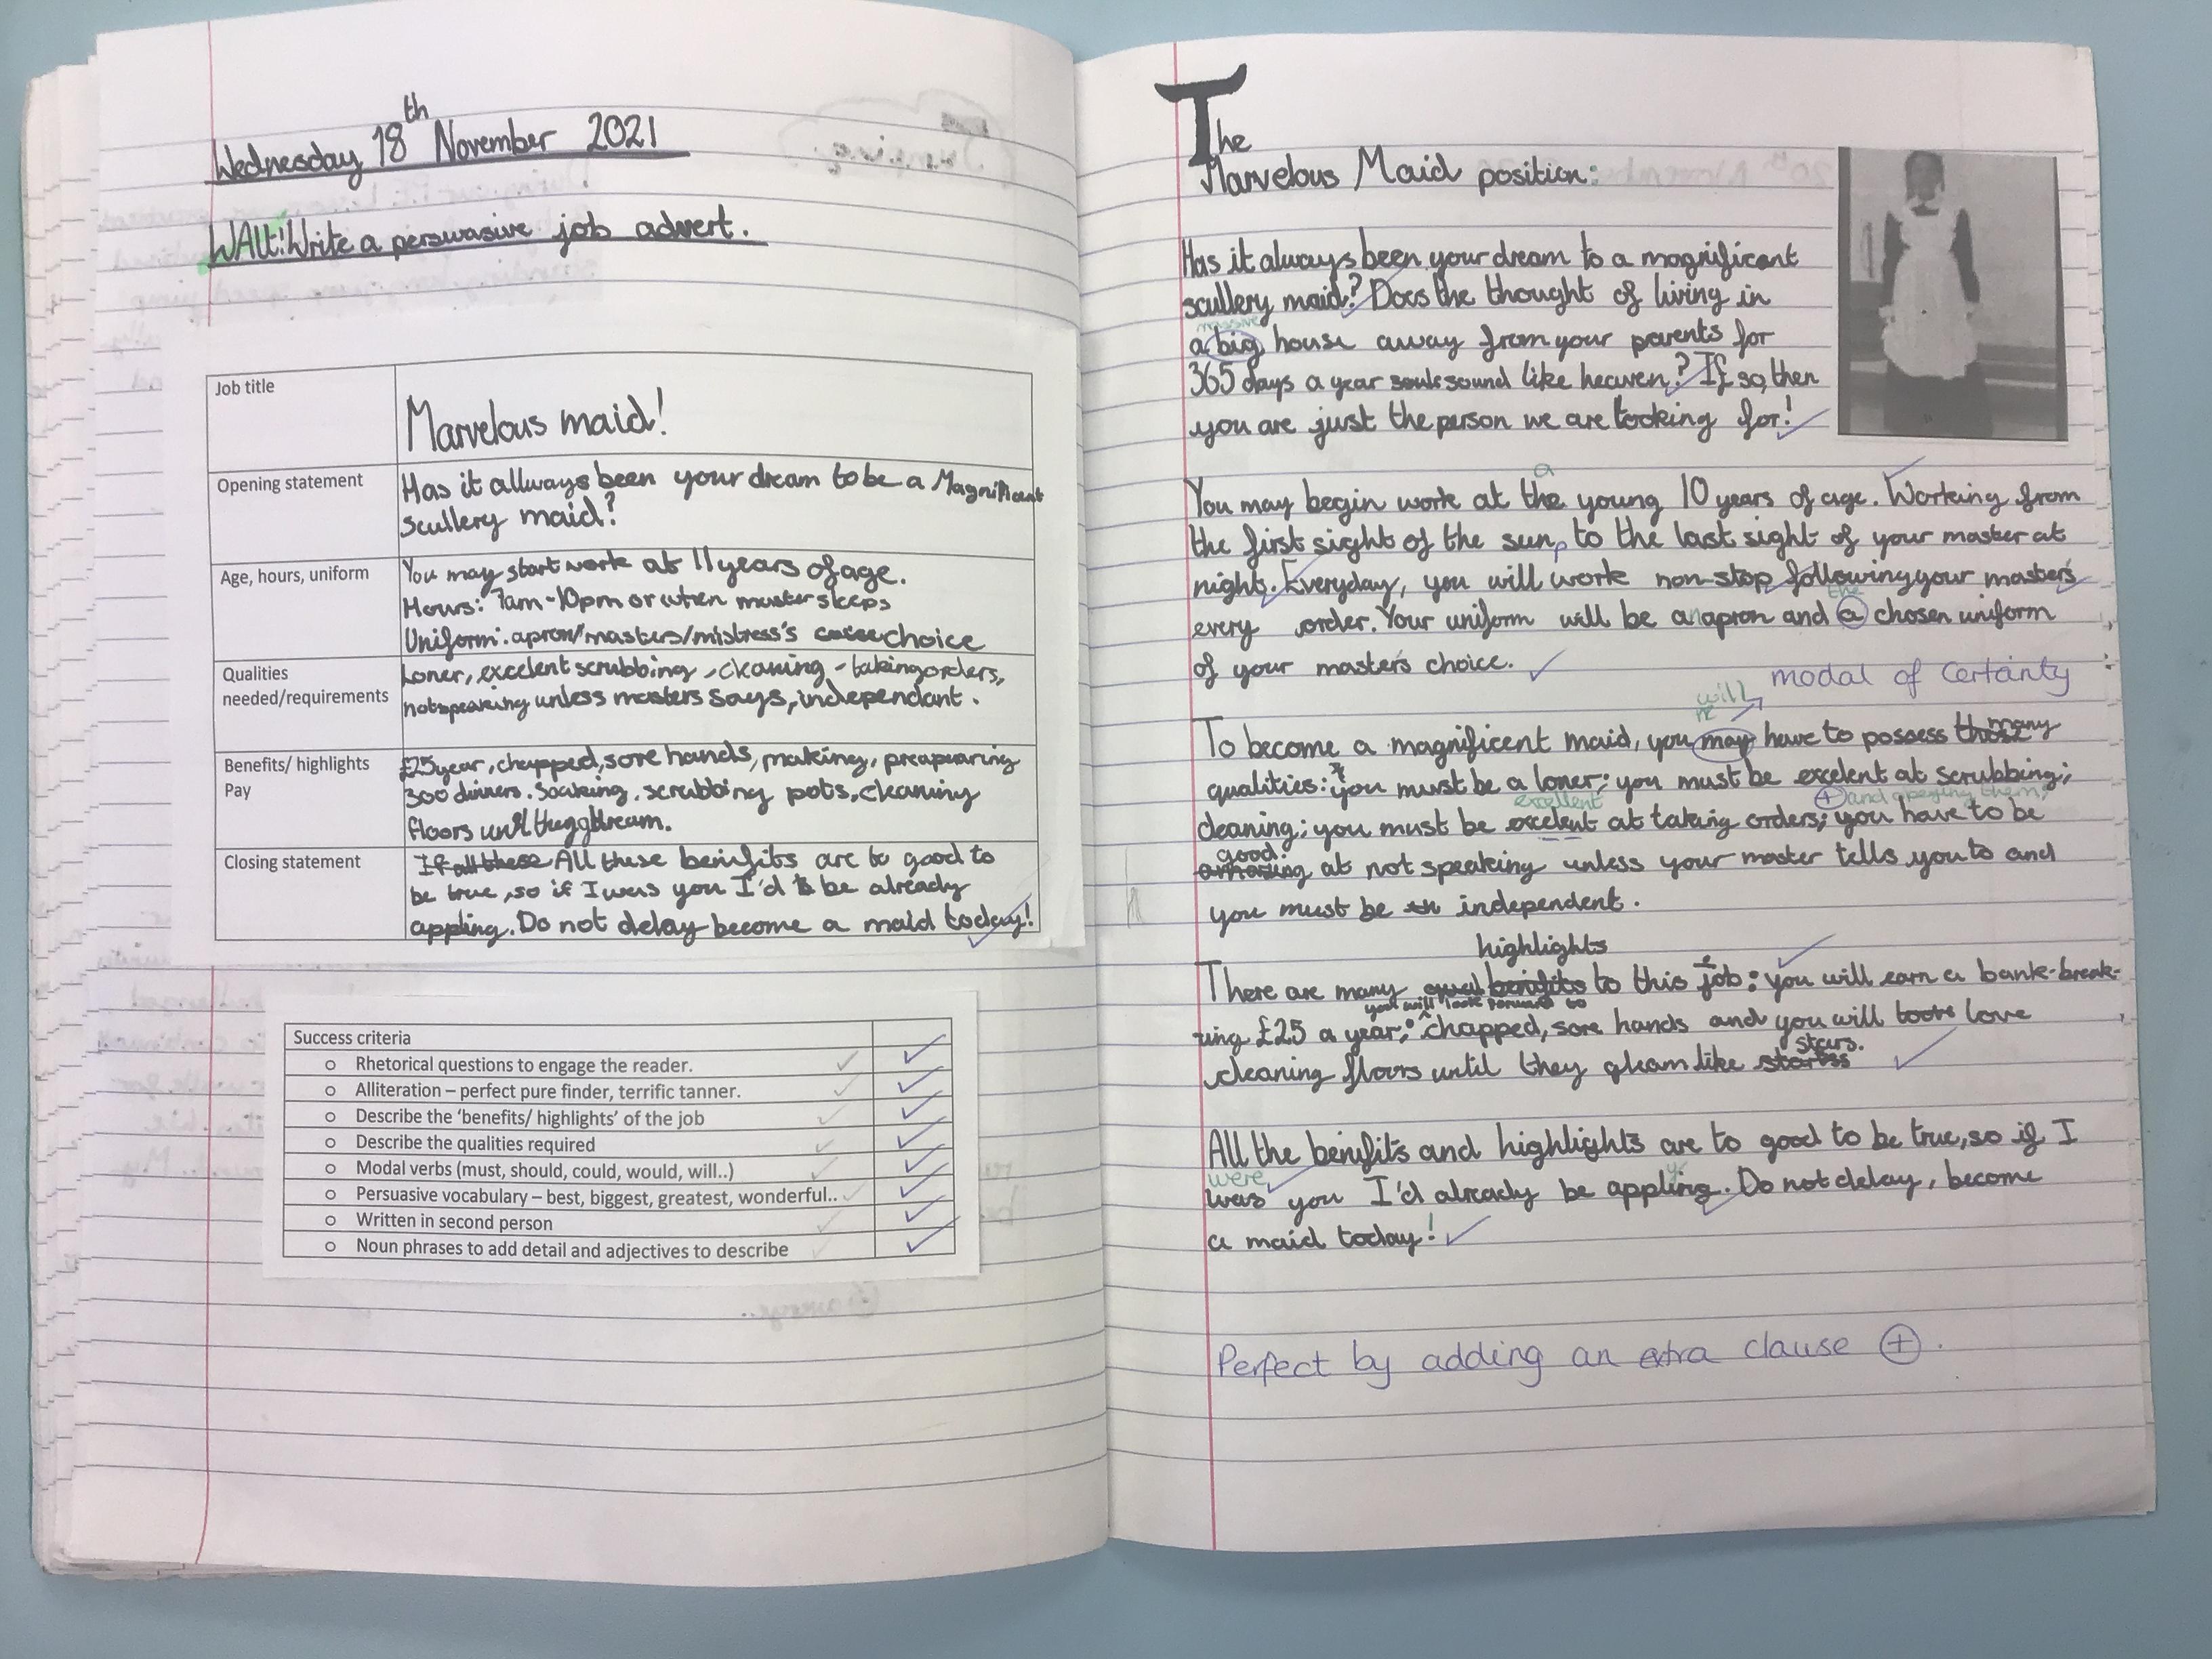 Wednesday 18th November 2021
WALt: Write a persuasive job advert.
Job title
Marvelous maid!
Opening statement
Has it allways been your dream to be a Magnificant
scullery maid?
Age, hours, uniform
You may start work at 11 years of age.
Hours: 7am-10pm or when master sleeps
Uniform: apron/masters/mistress's choice
Qualities
needed/requirements
Loner, excelent scrubbing, cleaning - taking orders,
not speaking unless masters says, independant.
Benefits/ highlights
Pay
£25 year, chapped, sore hands, making, preapearing
300 dinners. Soaking, scrubbing pots, cleaning
floors until
Closing statement
If all these All these benifits are to good to
be true, so if I was you I'd be already
appling. Do not delay become a maid today!
Success criteria
o Rhetorical questions to engage the reader.
o Alliteration – perfect pure finder, terrific tanner.
o Describe the 'benefits/ highlights' of the job
o Describe the qualities required
o Modal verbs (must, should, could, would, will..)
o Persuasive vocabulary – best, biggest, greatest, wonderful..
o Written in second person
o Noun phrases to add detail and adjectives to describe
The
Marvelous Maid position:
Has it always been your dream to a magnificent
scullery maid? Does the thought of living in
massive
a big house away from your parents for
365 days a year sound like heaven? If so, then
you are just the person we are looking for!
a
You may begin work at the young 10 years of age. Working from
the first sight of the sun, to the last sight of your master at
night. Everyday, you will work non-stop following your master's
the
every order. Your uniform will be an apron and a chosen uniform
of your master's choice.
modal of certainty
will
To become a magnificent maid, you may have to possess many
qualities: you must be a loner; you must be excelent at scrubbing;
excellent + and obeying them;
cleaning; you must be excelent at taking orders; you have to be
good
amazing at not speaking unless your master tells you to and
you must be independent.
highlights
There are many benifits to this job: you will earn a bank-break-
you will look forward to
ing £25 a year; chapped, sore hands and you will love
stars.
cleaning floors until they gleam like
All the benifits and highlights are to good to be true, so if I
were
y
was you I'd already be appling. Do not delay, become
a maid today!
Perfect by adding an extra clause +.